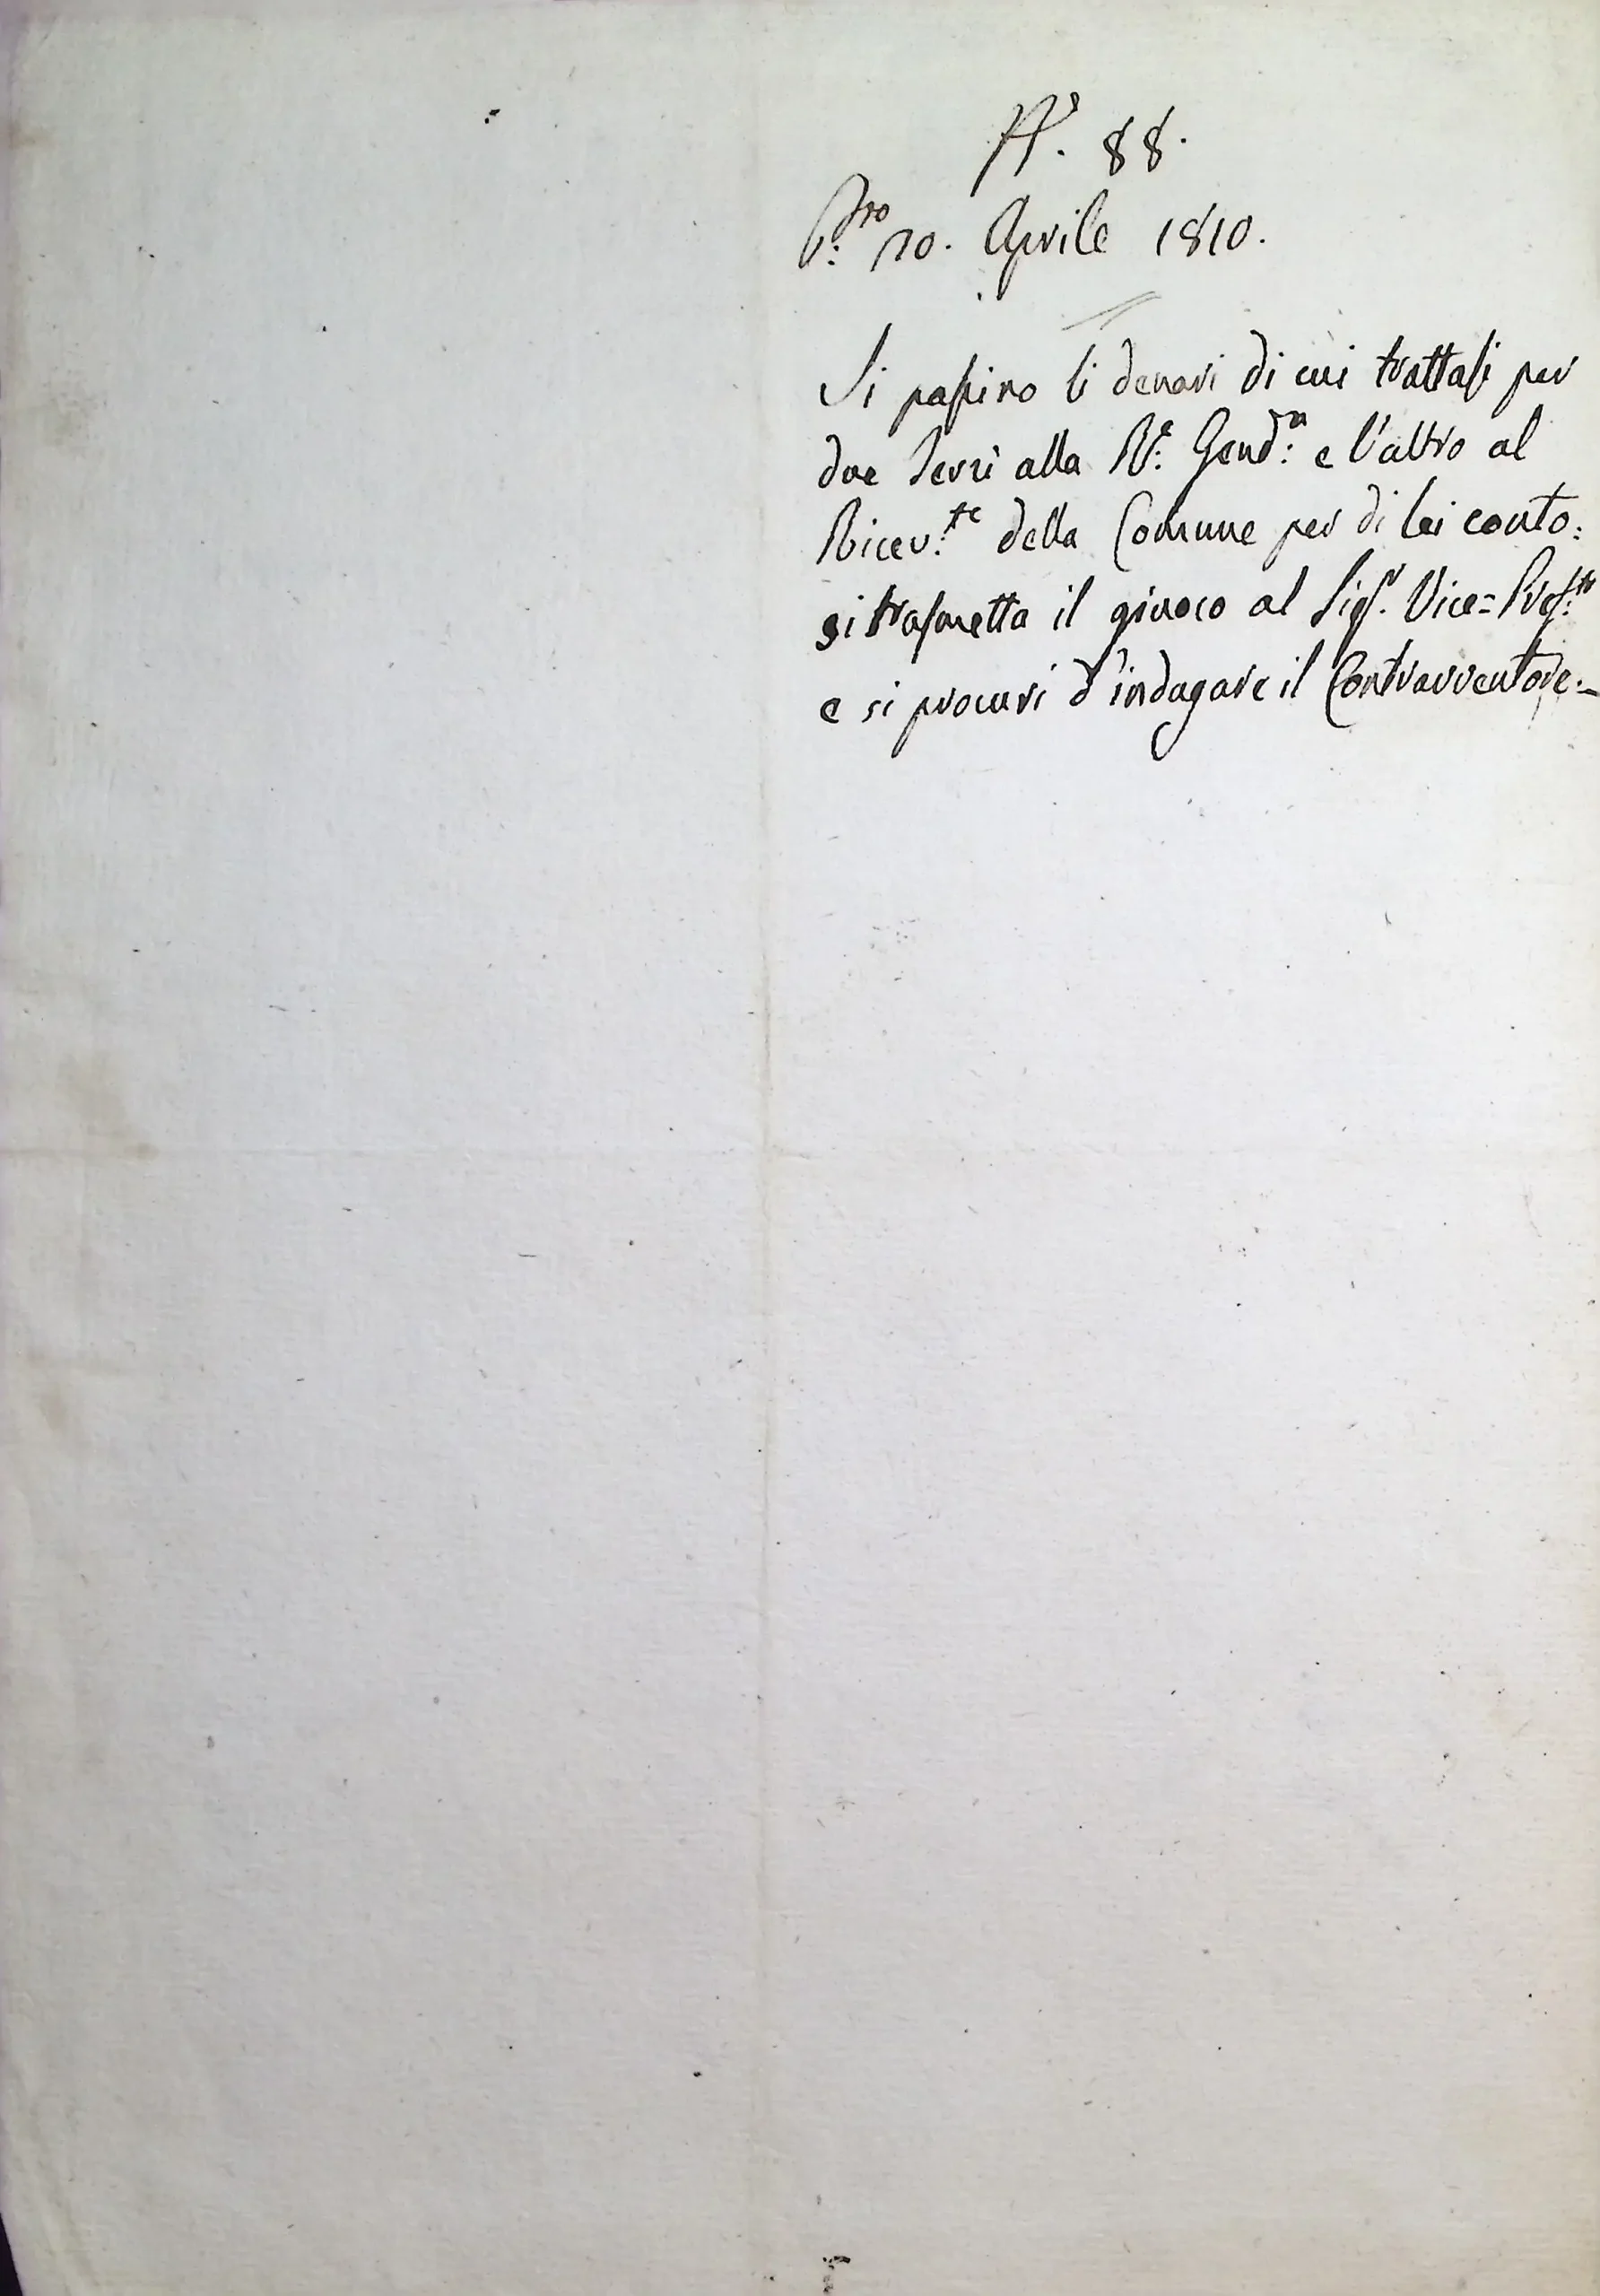 N.° 88.
P.tto 10. Aprile 1810.
Si passino li denari di cui trattasi per
due terzi alla R.e Gend.a e l'altro al
Ricev.te della Comune per di lei conto:
si trasmetta il giuoco al Sig.r Vice=Pref.tto
e si procuri d'indagare il Contravventore.=